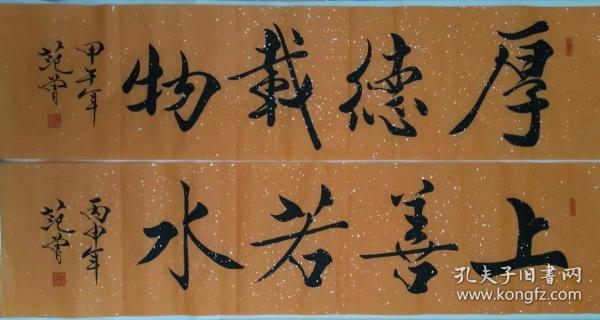 厚德载物
甲午年
范曾
上善若水
丙申年
范曾
孔夫子旧书网
www.kongfz.com